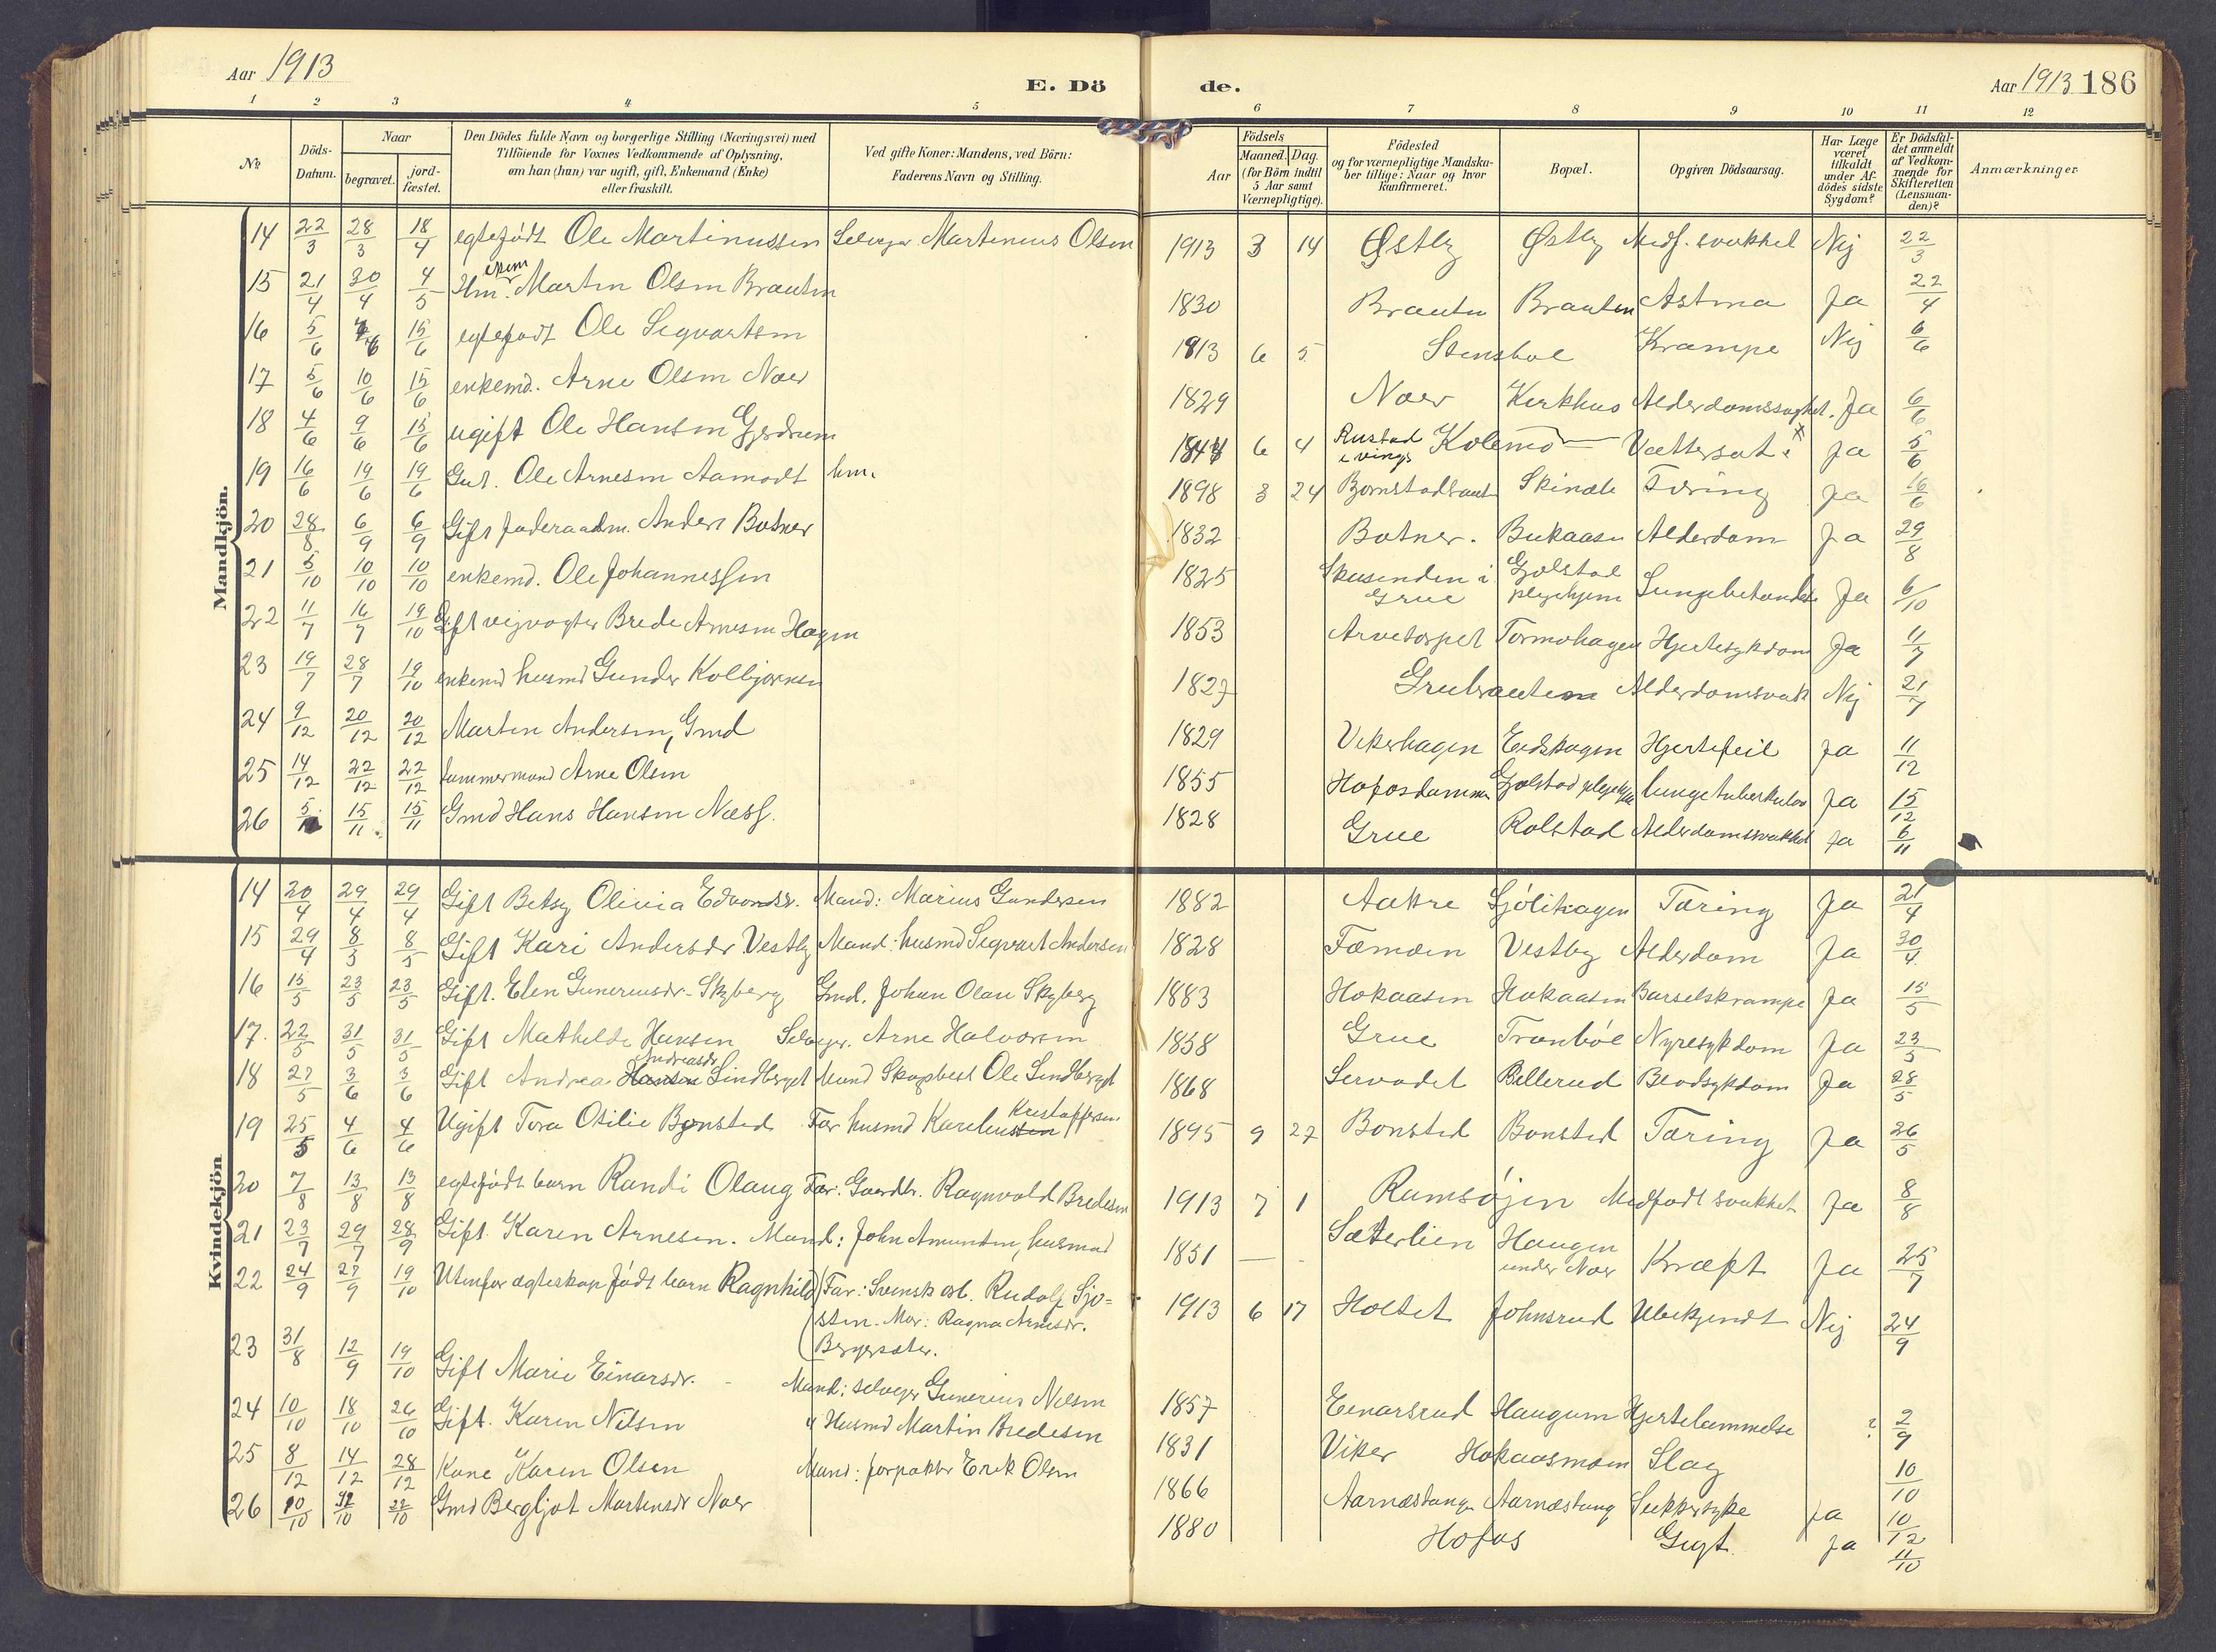 Aar 1913
E. Dö de.
Aar 1913 186
1 2 3 4 5 6 7 8 9 10 11 12
№
Döds-Datum.
Naar
begravet.
jord-fæstet.
Den Dödes fulde Navn og borgerlige Stilling (Næringsvei) med
Tilföiende for Voxnes Vedkommende af Oplysning,
om han (hun) var ugift, gift, Enkemand (Enke)
eller fraskilt.
Ved gifte Koner: Mandens, ved Börn:
Faderens Navn og Stilling.
Födsels
Aar
Maaned. Dag.
(for Börn indtil
5 Aar samt
Værnepligtige).
Födested
og for værnepligtige Mandska-
ber tillige: Naar og hvor
konfirmeret.
Bopæl.
Opgiven Dödsaarsag.
Har Læge
været
tilkaldt
under Af-
dödes sidste
Sygdom?
Er Dödsfal-
det anmeldt
af Vedkom-
mende for
Skifteretten
(Lensman-
den)?
Anmærkninger
Mandkjön.
14 22/3 28/3 18/4 egtefödt Ole Martinussen Selveger Martinius Olsen 1913 3 14 Østby Østby Medf. svakhet Nej 22/3
15 21/4 30/4 4/5 Hm. Martin Olsen Brauten 1830 Brauten Brauten Astma Ja 22/4
16 5/6 15/6 egtefodt Ole Sigvartsen 1913 6 5 Stensbøl Krampe Nej 6/6
17 5/6 10/6 15/6 enkemd. Arne Olsen Noer 1829 Noer Kirkhus Alderdomssvaghet. Ja 6/6
18 4/6 9/6 15/6 ugift Ole Hansen Gjerdrum 6 4 Rustad i vings Kolsmo Vattersot Ja 5/6
19 16/6 19/6 19/6 Gut. Ole Arnesen Aamodt hm. 1898 3 24 Skinde Tæring Ja 16/6
20 28/8 6/9 6/9 Gift føderaadsm. Anders Botner 1832 Botner. Bukaasen Alderdom Ja 29/8
21 5/10 10/10 10/10 enkemd. Ole Johannessen 1825 i Grue Gjølstad plejehjem Lungebetændelse Ja 6/10
22 11/7 16/7 19/10 Gift vejvogter Brede Arnesen Hagen 1853 Arvetorpet Tormohagen Hjertesykdom Ja 11/7
23 19/7 28/7 19/10 enkemd husmd Gunder Kolbjørnsen 1827 Grubrauten Alderdomsvak Nej 21/7
24 9/12 20/12 20/12 Martin Andersen, Gmd 1829 Vikerhagen Eidskogen Hjertefeil Ja 11/12
25 14/12 22/12 22/12 tømmermand Arne Olsen 1855 Hofosdammen Gjølstad plejehj. lungetuberkulos Ja 15/12
26 15/11 15/11 Gmd Hans Hansen Næss. 1828 Grue Rolstad Alderdomssvakhed Ja 6/11
Kvindekjön
14 20/4 29/4 29/4 Gift Betsy Olivia Edvardsdr. Mand: Marius Gundersen 1882 Aakre Sjölihagen Tæring Ja 21/4
15 29/4 8/5 8/5 Gift Kari Andersdr. Vestby Mand: husmd Sigvart Andersen 1828 Tæmoen Vestby Alderdom Ja 30/4
16 15/5 23/5 23/5 Gift. Elen Guneriusdr. Skyberg Gmd. Johan Olau Skyberg 1883 Hokaasen Hokaasen Barselskrampe Ja 15/5
17. 22/5 31/5 31/5 Gift Mathilde Hansen Selveger. Arne Halvorsen 1858 Grue Tranbøl Nyresykdom Ja 23/5
18 27/5 3/6 3/6 Gift Andrea Hansen Andreasdr. Lindberget Mand Skogbest Ole Lindberget 1868 Servodet Bellerud Blodsykdom Ja 28/5
19 25/5 4/6 4/6 Ugift Tora Otilie Bonsted Far husmd Kristoffersen 1895 9 27 Bonsted Bonsted Tæring Ja 26/5
20 7/8 13/8 13/8 egtefödt barn Randi Olaug Far: Gaardbr. Ragnvald Bredesen 1913 7 1 Ramsøjen Medfödt svakhet Ja 8/8
21 23/7 29/7 28/9 Gift. Karen Arnesen. Mand: John Amundsen, husmand 1851 — Sæterlien Haugen under Noer Kræft Ja 25/7
22 24/9 27/9 19/10 Utenfor ægteskap födt barn Ragnhild (Far: Svensk arb. Rudolf Sjö-
sten. Mor: Ragna Arnesdr.
Bergersæter. 1913 6 17 Holtet Johnsrud Ubekjendt Nej 24/9
23 31/8 12/9 19/10 Gift Marie Einarsdr. - Mand: selveger Gunerius Nilsen 1857 Einarsrud Haugum Hjertelammelse ? 2/9
24 10/10 18/10 26/10 Gift. Karen Nilsen " Husmd Martin Bredesen 1831 Viker Hokaasmoen Slag 10/10
25 8/12 14/12 28/12 Kone Karen Olsen Mand: forpakter Erik Olsen 1866 Aarnæstangen Aarnæstang Sukkersyke Ja 10/12
26 10/10 22/10 Gmd Bergljot Martinsdr Noer 1880 Hofos Gigt. Ja 11/10